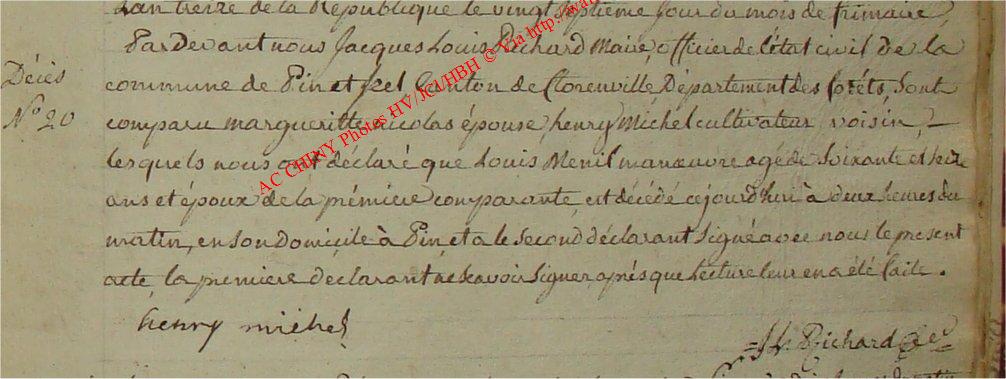 L'an treize de la République le vingt septième jour du mois de frimaire,
Pardevant nous Jacques Louis Richard Maire, officier de l'état civil de la
Décès
N° 20
commune de Pin et Izel, Canton de florenville, Département des forêts, Sont
comparu margueritte nicolas épouse, henry Michel cultivateur voisin, –
lesquels nous ont déclaré que Louis Menil manœuvre agé de Soixante et seize
ans et époux de la prémière comparante, est décédé cejourd'hui à deux heures du
matin, en son Domicile à Pin, et a le Second déclarant Signé avec nous le présent
acte, la premiere declarant ne savoir Signer après que Lecture leur en a été faite.
henry michel
=JL. Richard
AC CHINY Photos HV/JCl/HBH © Via http://wa